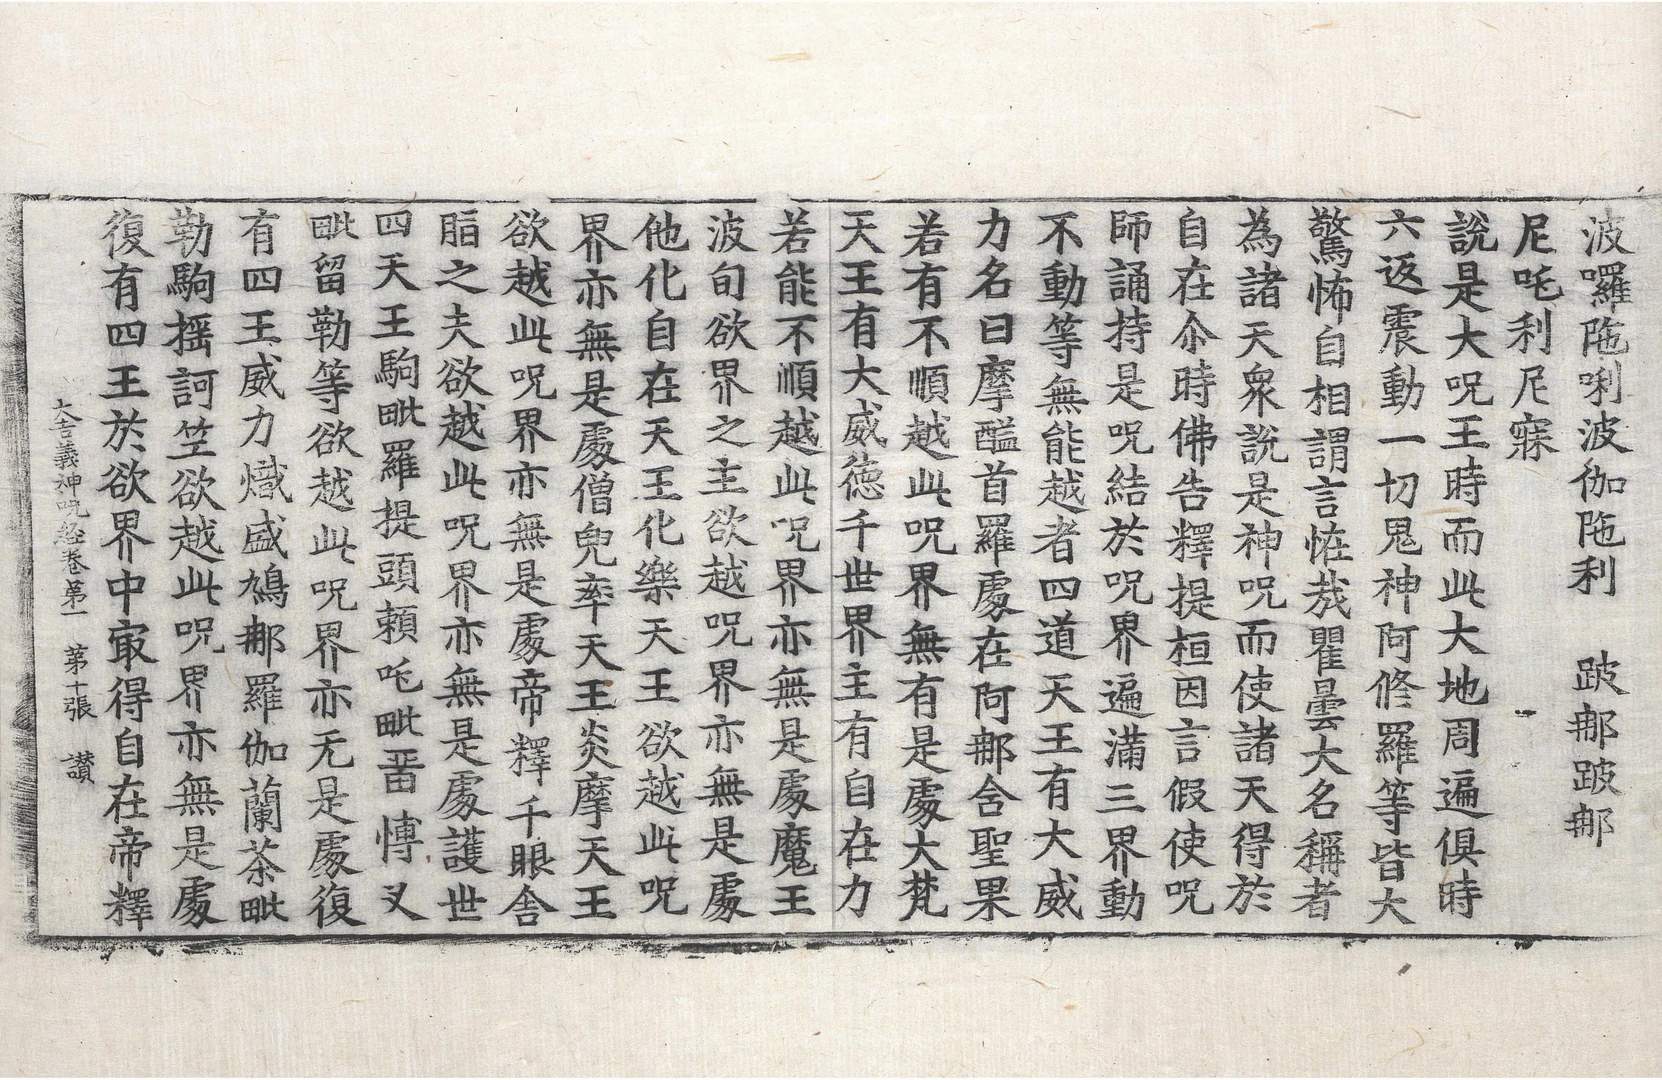 波囉陁唎波伽陁利　跛𨚗跛𨚗
尼吒利尼寐
說是大呪王時而此大地周遍俱時
六返震動一切鬼神阿修羅等皆大
驚怖自相謂言恠㦲瞿曇大名稱者
為諸天衆說是神呪而使諸天得於
自在尒時佛告釋提桓因言假使呪
師誦持是呪結於呪界遍滿三界動
不動等無能越者四道天王有大威
力名曰摩醯首羅處在阿𨚗含聖果
若有不順越此呪界無有是處大梵
天王有大威德千世界主有自在力
若能不順越此呪界亦無是處魔王
波旬欲界之主欲越呪界亦無是處
他化自在天王化樂天王欲越此呪
界亦無是處僧兜率天王炎摩天王
欲越此呪界亦無是處帝釋千眼舎
脂之夫欲越此呪界亦無是處護世
四天王駒毗羅提頭賴吒毗留博叉
毗留勒等欲越此呪界亦无是處復
有四王威力熾盛鳩𨚗羅伽蘭茶毗
勒駒揺訶笠欲越此呪界亦無是處
復有四王於欲界中㝡得自在帝釋
大吉義神呪経卷第一　第十張　讃